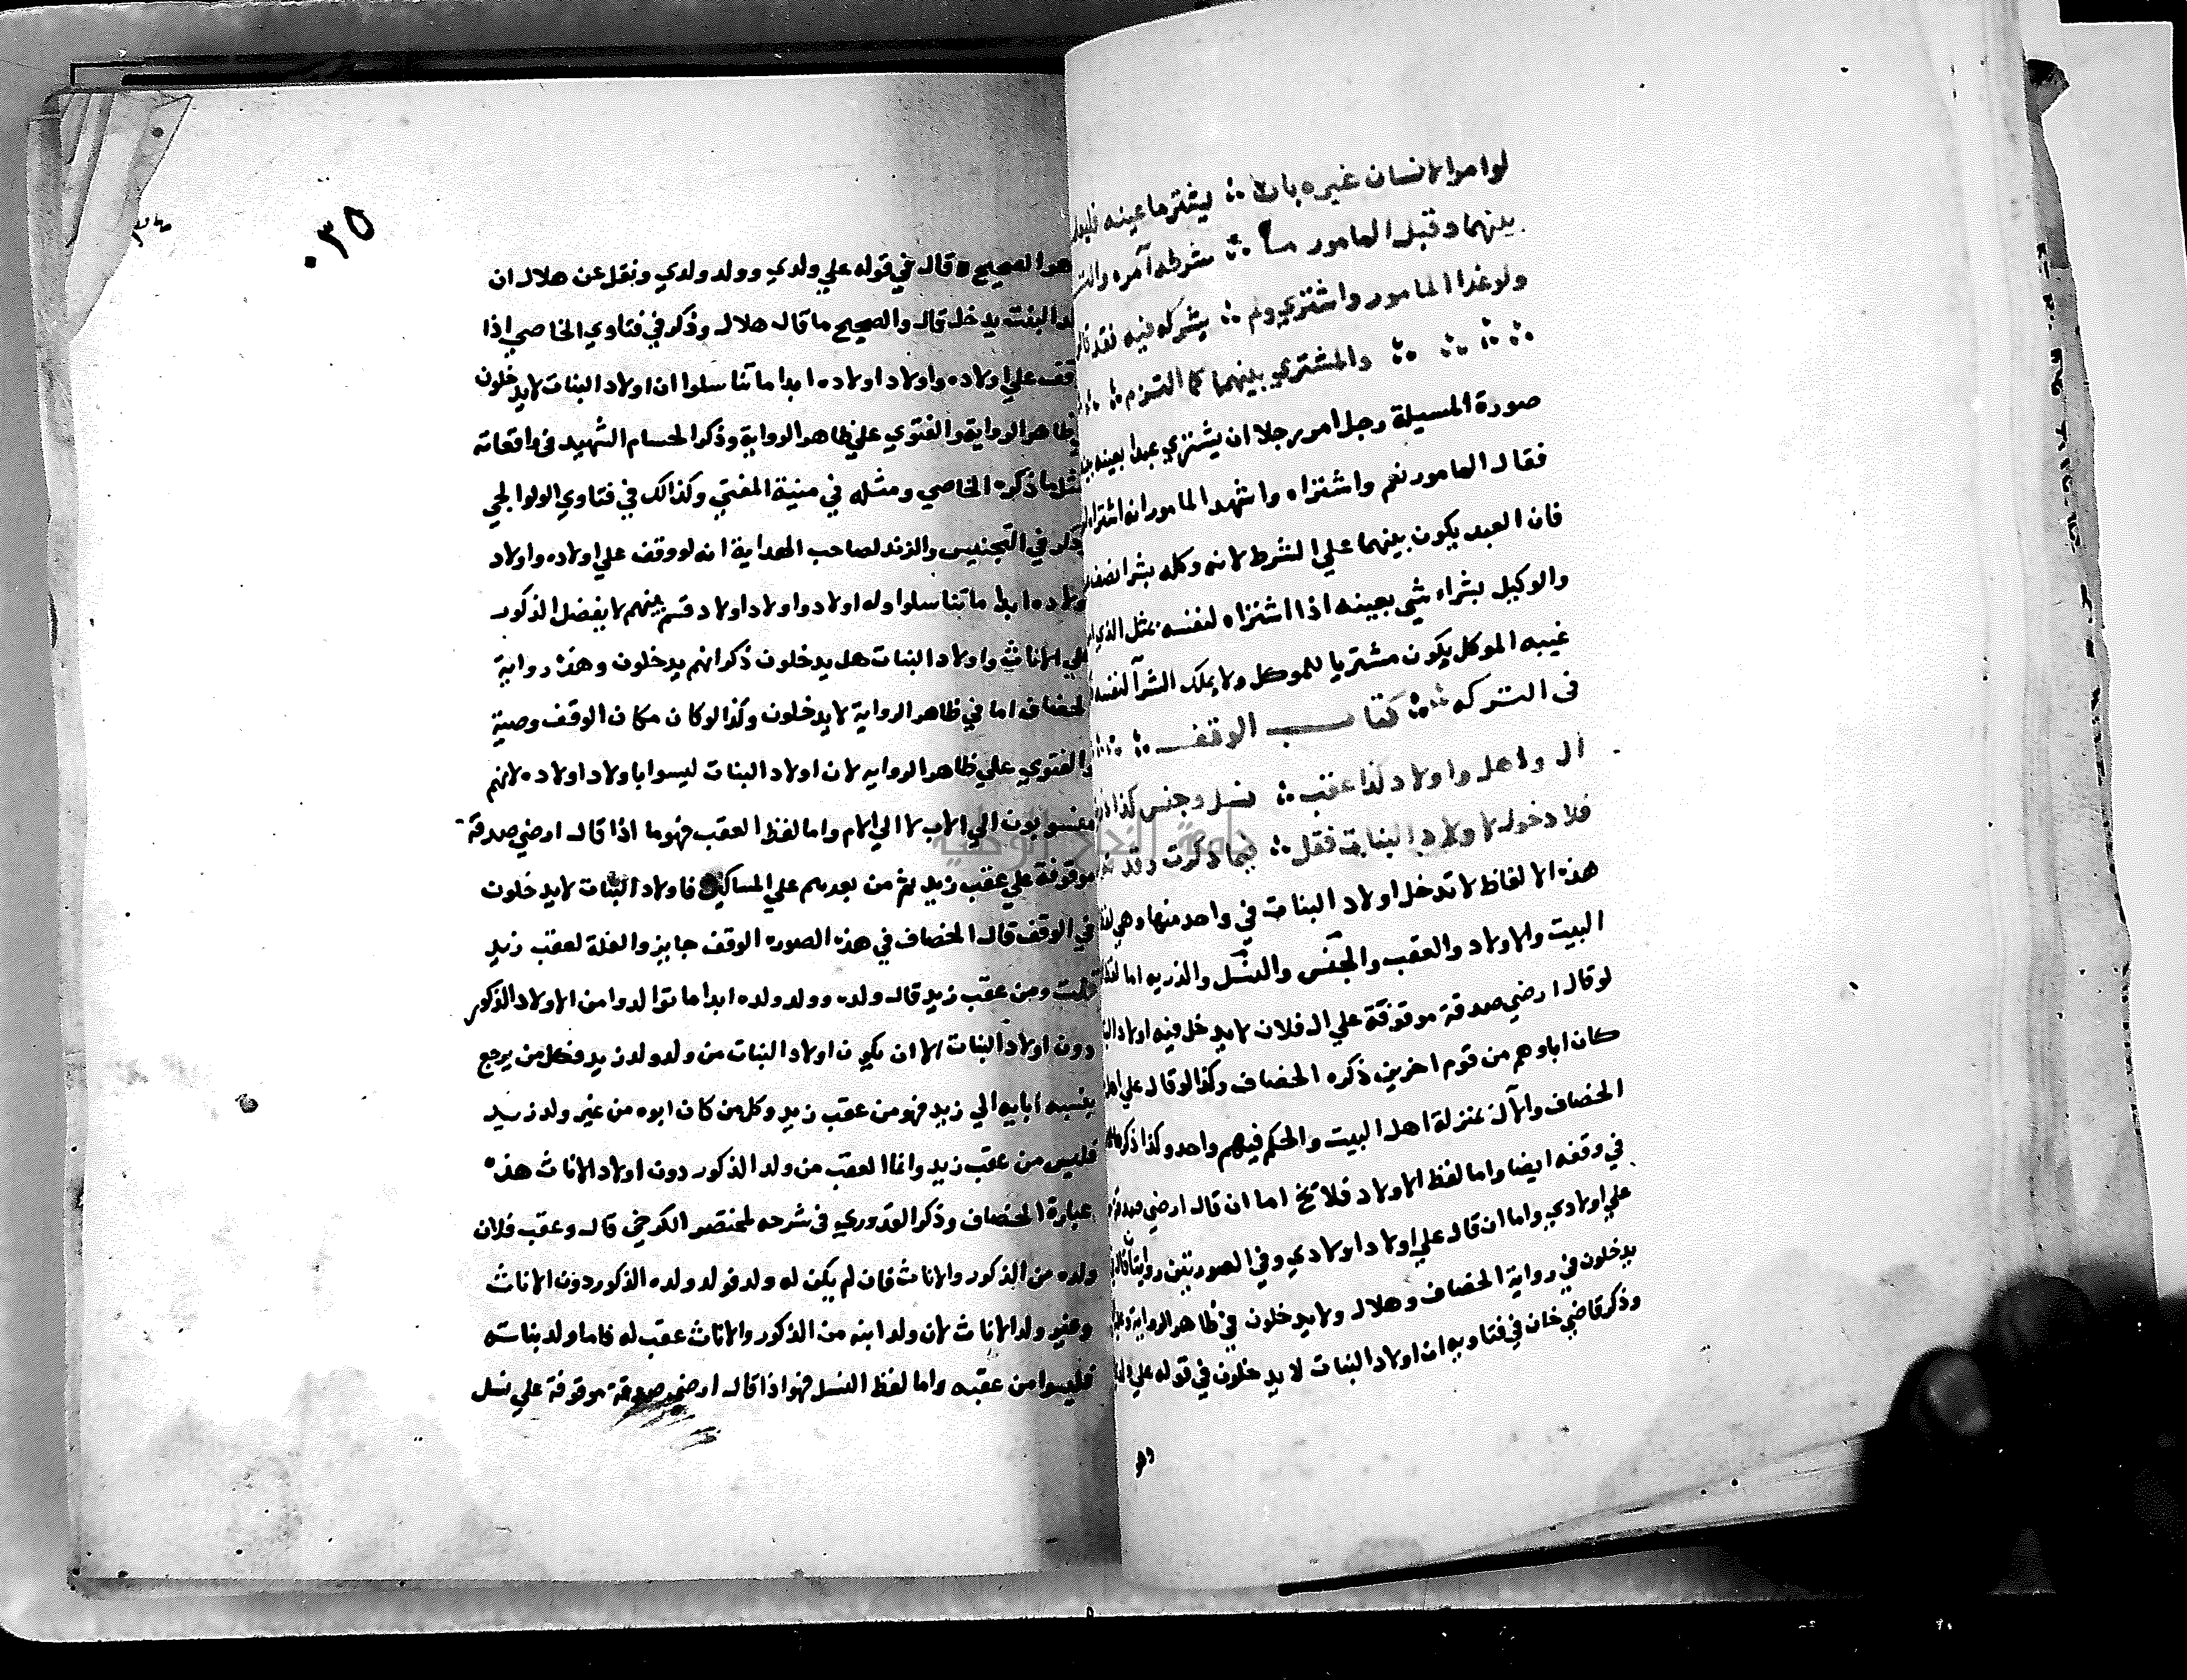 لوامرالانسان غيره بان لا ∴ يشتر ما عينه
بينهما وقبل المامور ∴ شركه آمره
ولو غدا المامور واشتري ولم ∴ يشركه فيه فقد
والمشتري بينهما كما التزم ∴
صورة المسيلة رجل امر رجلا ان يشتري عبدا بعينه
فقال المامور نعم واشتراه واشهد المامور انه اشتراه
فان العبد يكون بينهما علي الشرط لانه وكله بشرا نصف
والوكيل بشراء شي بعينه اذا اشتراه لنفسه بمثل الذي
غيبه الموكل يكون مشتريا للموكل ولا يملك الشرآ لنفسه
في التركه ∴ كتاب الوقف ∴
ال واهل واولاد كذا عقب ∴ نسل وجنس كذا
فلا دخول لاولاد البنات فقل ∴ فيما ذكرت وقد
هذه الالفاظ لا تدخل اولاد البنات في واحد منها وهي
البيت والاولاد والعقب والجنس والنسل والذريه اما
لو قال ارضي صدقة موقوفة علي ال فلان لا يدخل فيه اولاد
كان اباوهم من قوم اخرين ذكره الخصاف وكذا لو قال علي
الخصاف والآل بمنزلة اهل البيت والحكم فيهم واحد وكذا ذكره
في وقفه ايضا واما لفظ الاولاد فلا يخ اما ان قال ارضي صدقة
علي اولادي واما ان قال علي اولاد اولادي وفي الصورتين روايتان
يدخلون في رواية الخصاف وهلال ولا يدخلون في ظاهر الرواية
وذكر قاضي خان في فتاويه ان اولاد البنات لا يدخلون في قوله علي
وهو
٠٣٥
هو الصحيح قال في قوله علي ولدي وولد ولدي ونقل عن هلال ان
ولد البنت يدخل قال والصحيح ما قال هلال وذكر في فتاوي الخاصي اذا
وقف علي اولاده واولاد اولاده ابدا ما تناسلوا ان اولاد البنات لا يدخلون
في ظاهر الرواية والفتوي علي ظاهر الرواية وذكر الحسام الشهيد في واقعاته
مثل ما ذكره الخاصي ومثله في منية المفتي وكذالك في فتاوي الولوالجي
في التجنيس والمزيد لصاحب الهداية انه لو وقف علي اولاده واولاد
اولاده ابدا ما تناسلوا وله اولاد واولاد اولاد قسم بينهم لا يفضل الذكور
علي الاناث واولاد البنات هل يدخلون ذكر انهم يدخلون وهذه رواية
الخصاف اما في ظاهر الرواية لا يدخلون وكذا لو كان مكان الوقف وصية
والفتوي علي ظاهر الروايه لان اولاد البنات ليسوا باولاد اولاده لانهم
منسوبون الي الاب لا الي الام واما لفظ العقب فهو ما اذا قال ارضي صدقة
موقوفة علي عقب زيد ثم من بعدهم علي المساكين فاولاد البنات لا يدخلون
في الوقف قال الخصاف في هذه الصوره الوقف جايز والغلة لعقب زيد
قلت ومن عقب زيد قال ولده وولد ولده ابدا ما توالدوا من الاولاد الذكور
دون اولاد البنات الا ان يكون اولاد البنات من ولد ولد زيد فكل من يرجع
بنسبه ابايه الي زيد فهو من عقب زيد وكل من كان ابوه من غير ولد زيد
فليس من عقب زيد وانما العقب من ولد الذكور دون اولاد الاناث هذه
عبارة الخصاف وذكر القدوري في شرحه لمختصر الكرخي قال وعقب فلان
ولده من الذكور والاناث فان لم يكن له ولد فولد ولده الذكور دون الاناث
وغير ولد الاناث لان ولد ابنه من الذكور والاناث عقب له فاما ولد بناته
فليسوا من عقبه واما لفظ النسل فهو اذا قال ارضي صدقة موقوفة علي نسل